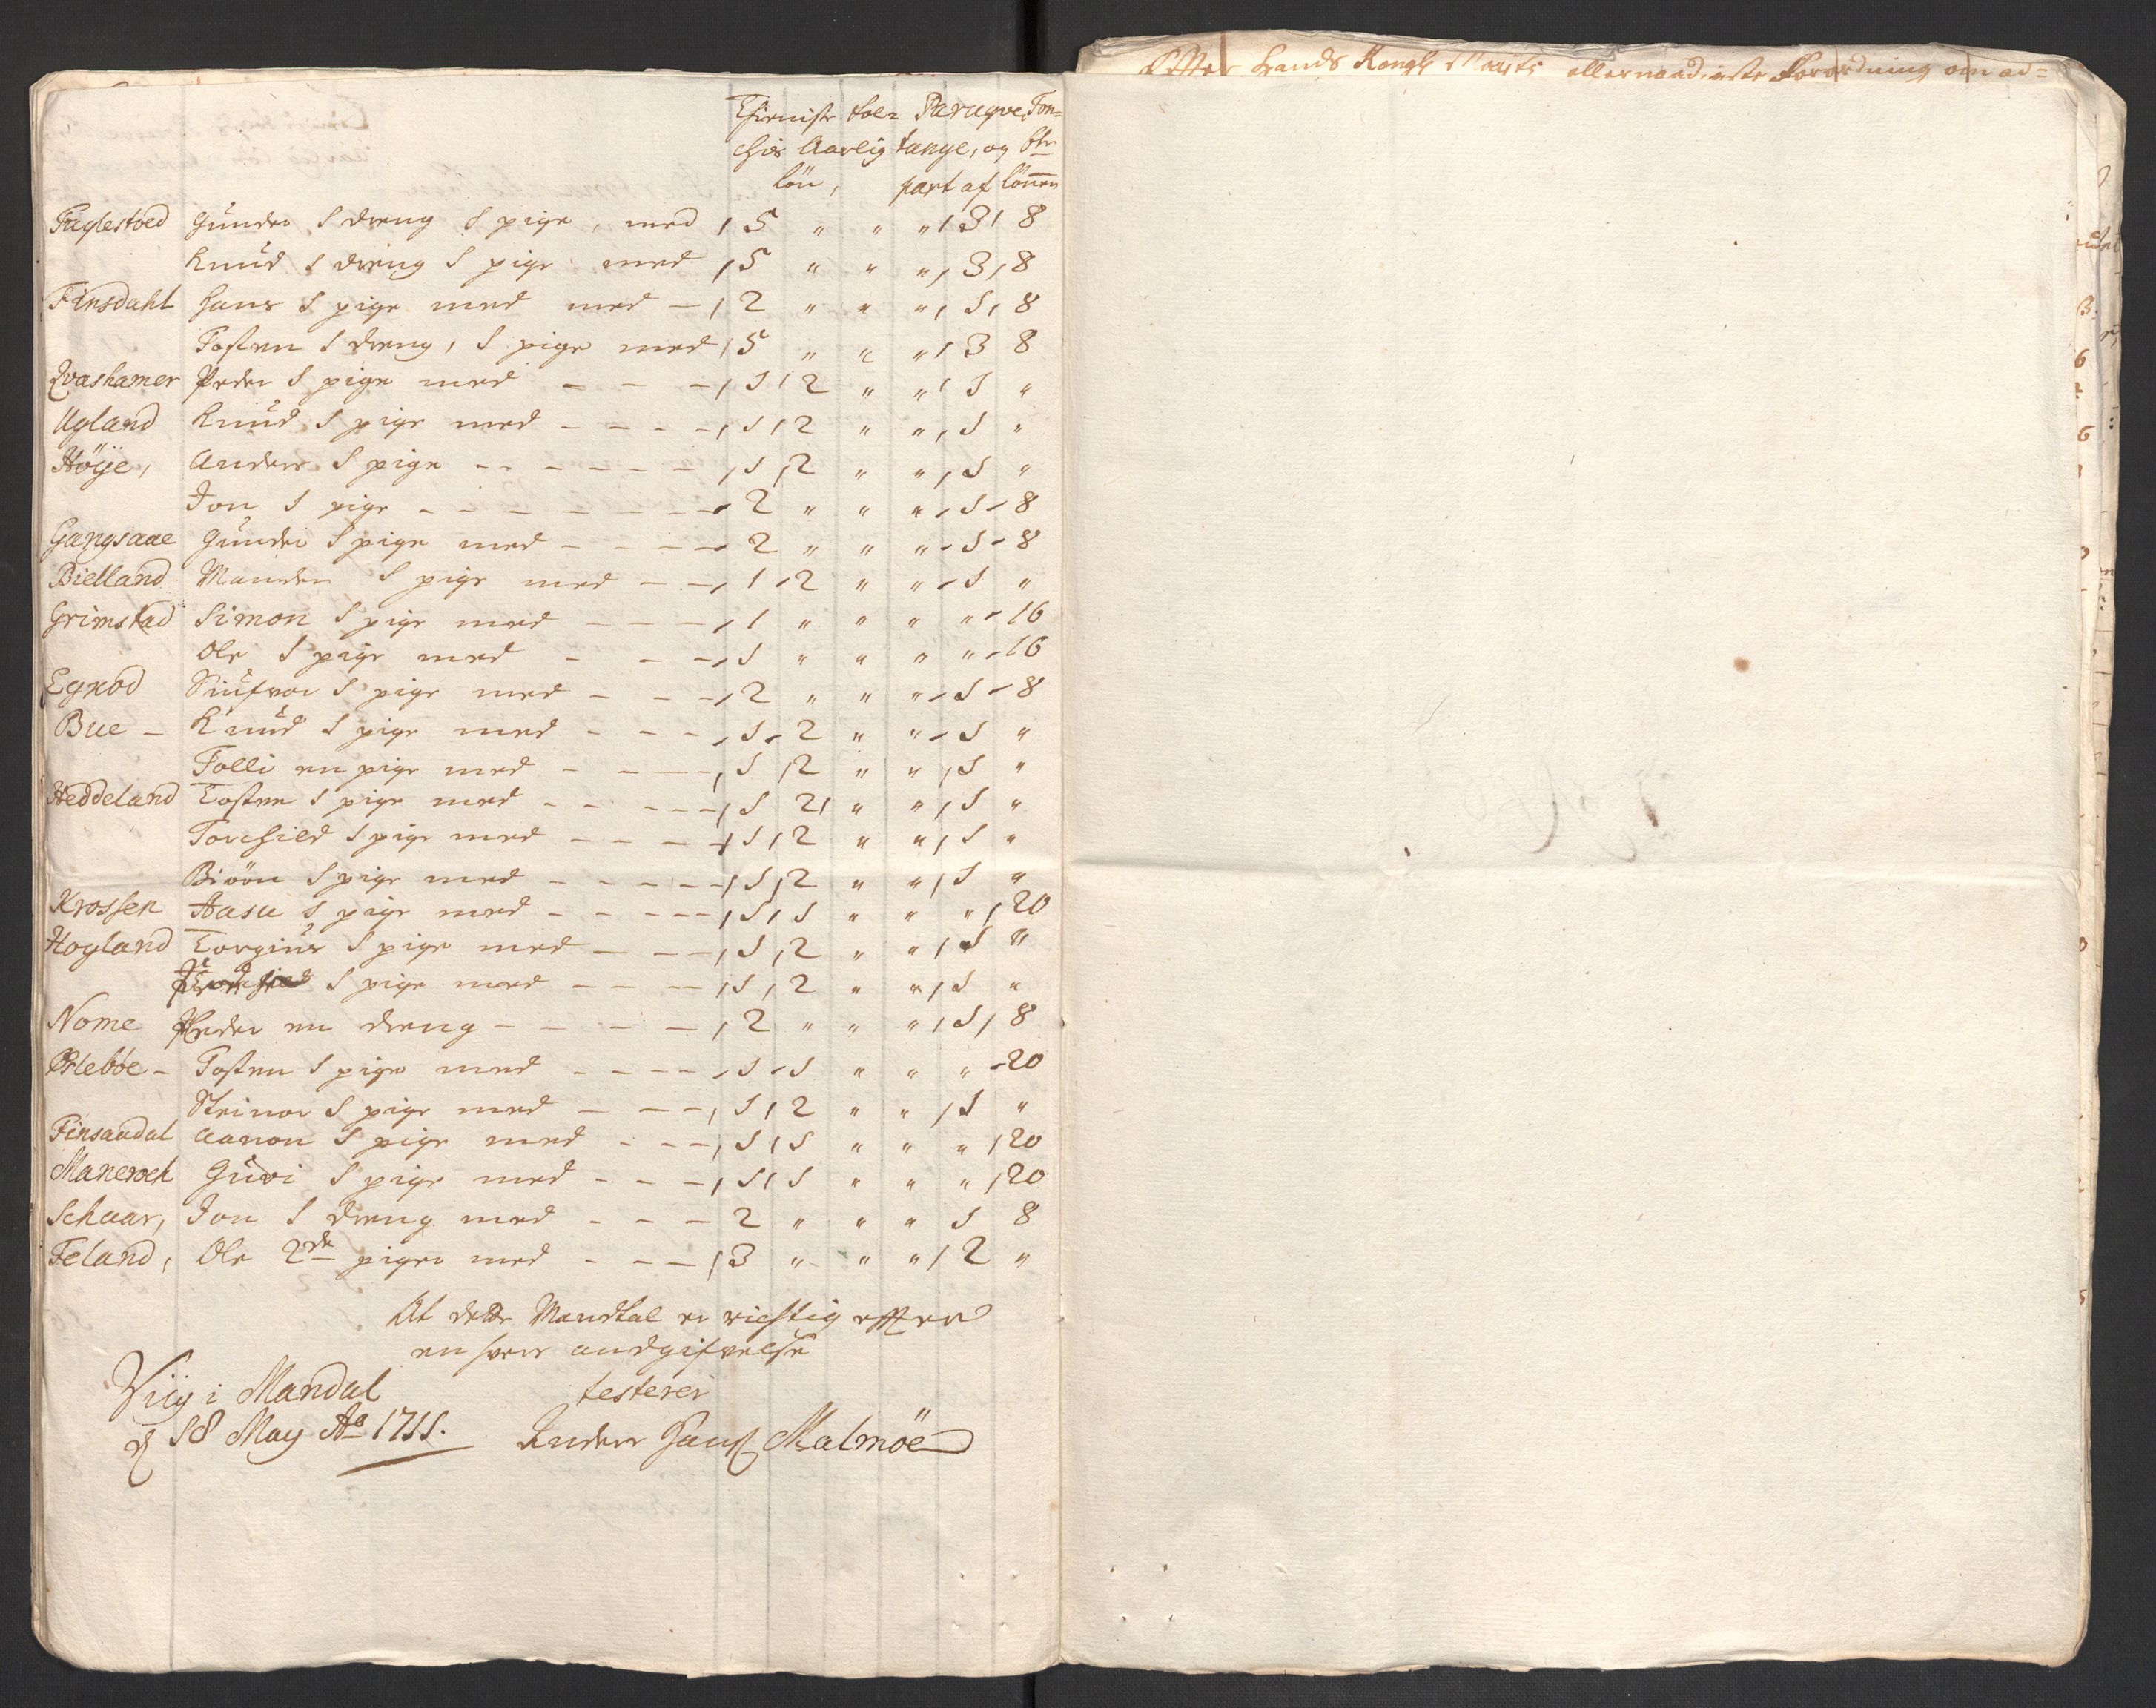 Tieniste fol= Paruqve, Fon=
chis Aarlig tange, og 6te
lön, part af lönnen
Fuglestved Gunder 1 dreng 1 pige, med 5 " " " 3 8
Knud 1 dreng 1 pige med 5 " " " 3 8
Finsdahl Hans 1 pige med med – 2 " " " 1 8
Tosten 1 dreng, 1 pige med 5 " " " 3 8
Qvashamer Peder 1 pige med – – – 1 2 " " 1 "
Ugland Knud 1 pige med – – – – 1 2 " " 1 "
Höÿe, Anders 1 pige – – – – – – 1 2 " " 1 "
Jon 1 pige – – – – – – – 2 " " " 1 8
Gangsaae Gunder 1 pige med – – – – 2 " " " 1 8
Bielland Mander 1 pige med – – – 1 2 " " 1 "
Grimstad Simon 1 pige med – – – – 1 " " " " 16
Ole 1 pige med – – – 1 " " " " 16
Egrod 1 pige med – – – 2 " " " 1 8
Bue – Knud 1 pige med – – – – 1 2 " " 1 "
Tolli en pige med – – – – 1 2 " " 1 "
Heddeland Tosten 1 pige med – – – – – 1 2 " " 1 "
Torchield 1 pige med – – – – 1 2 " " 1 "
Biöön 1 pige med – – – – – 1 2 " " 1 "
Krossen Aasu 1 pige med – – – – – 1 1 " " " 20
Hogland Torgius 1 pige med – – – – 1 2 " " 1 "
1 pige med – – – – 1 2 " " 1 "
Nome Peder en dreng – – – – – 2 " " " 1 8
Øslebøe – Tosten 1 pige med – – – – 1 1 " " " 20
Steinor 1 pige med – – – 1 2 " " 1 "
Finsandal Aanon 1 pige med – – – 1 1 " " " 20
Maneroch Guri 1 pige med – – – 1 1 " " " 20
Schaar, Jon 1 dreng med – – – 2 " " " 1 8
Feland, Ole 2de piger med – – – 3 " " " 2 "
At dette Mandtal er richtig effter
en hvers andgifvelse
Viig i Mandal testerer
d 18 May Ao 1711. Anders Hansß Malmöe
Effter Hands Kongl Mayts allernaadigste Forordning om ad=